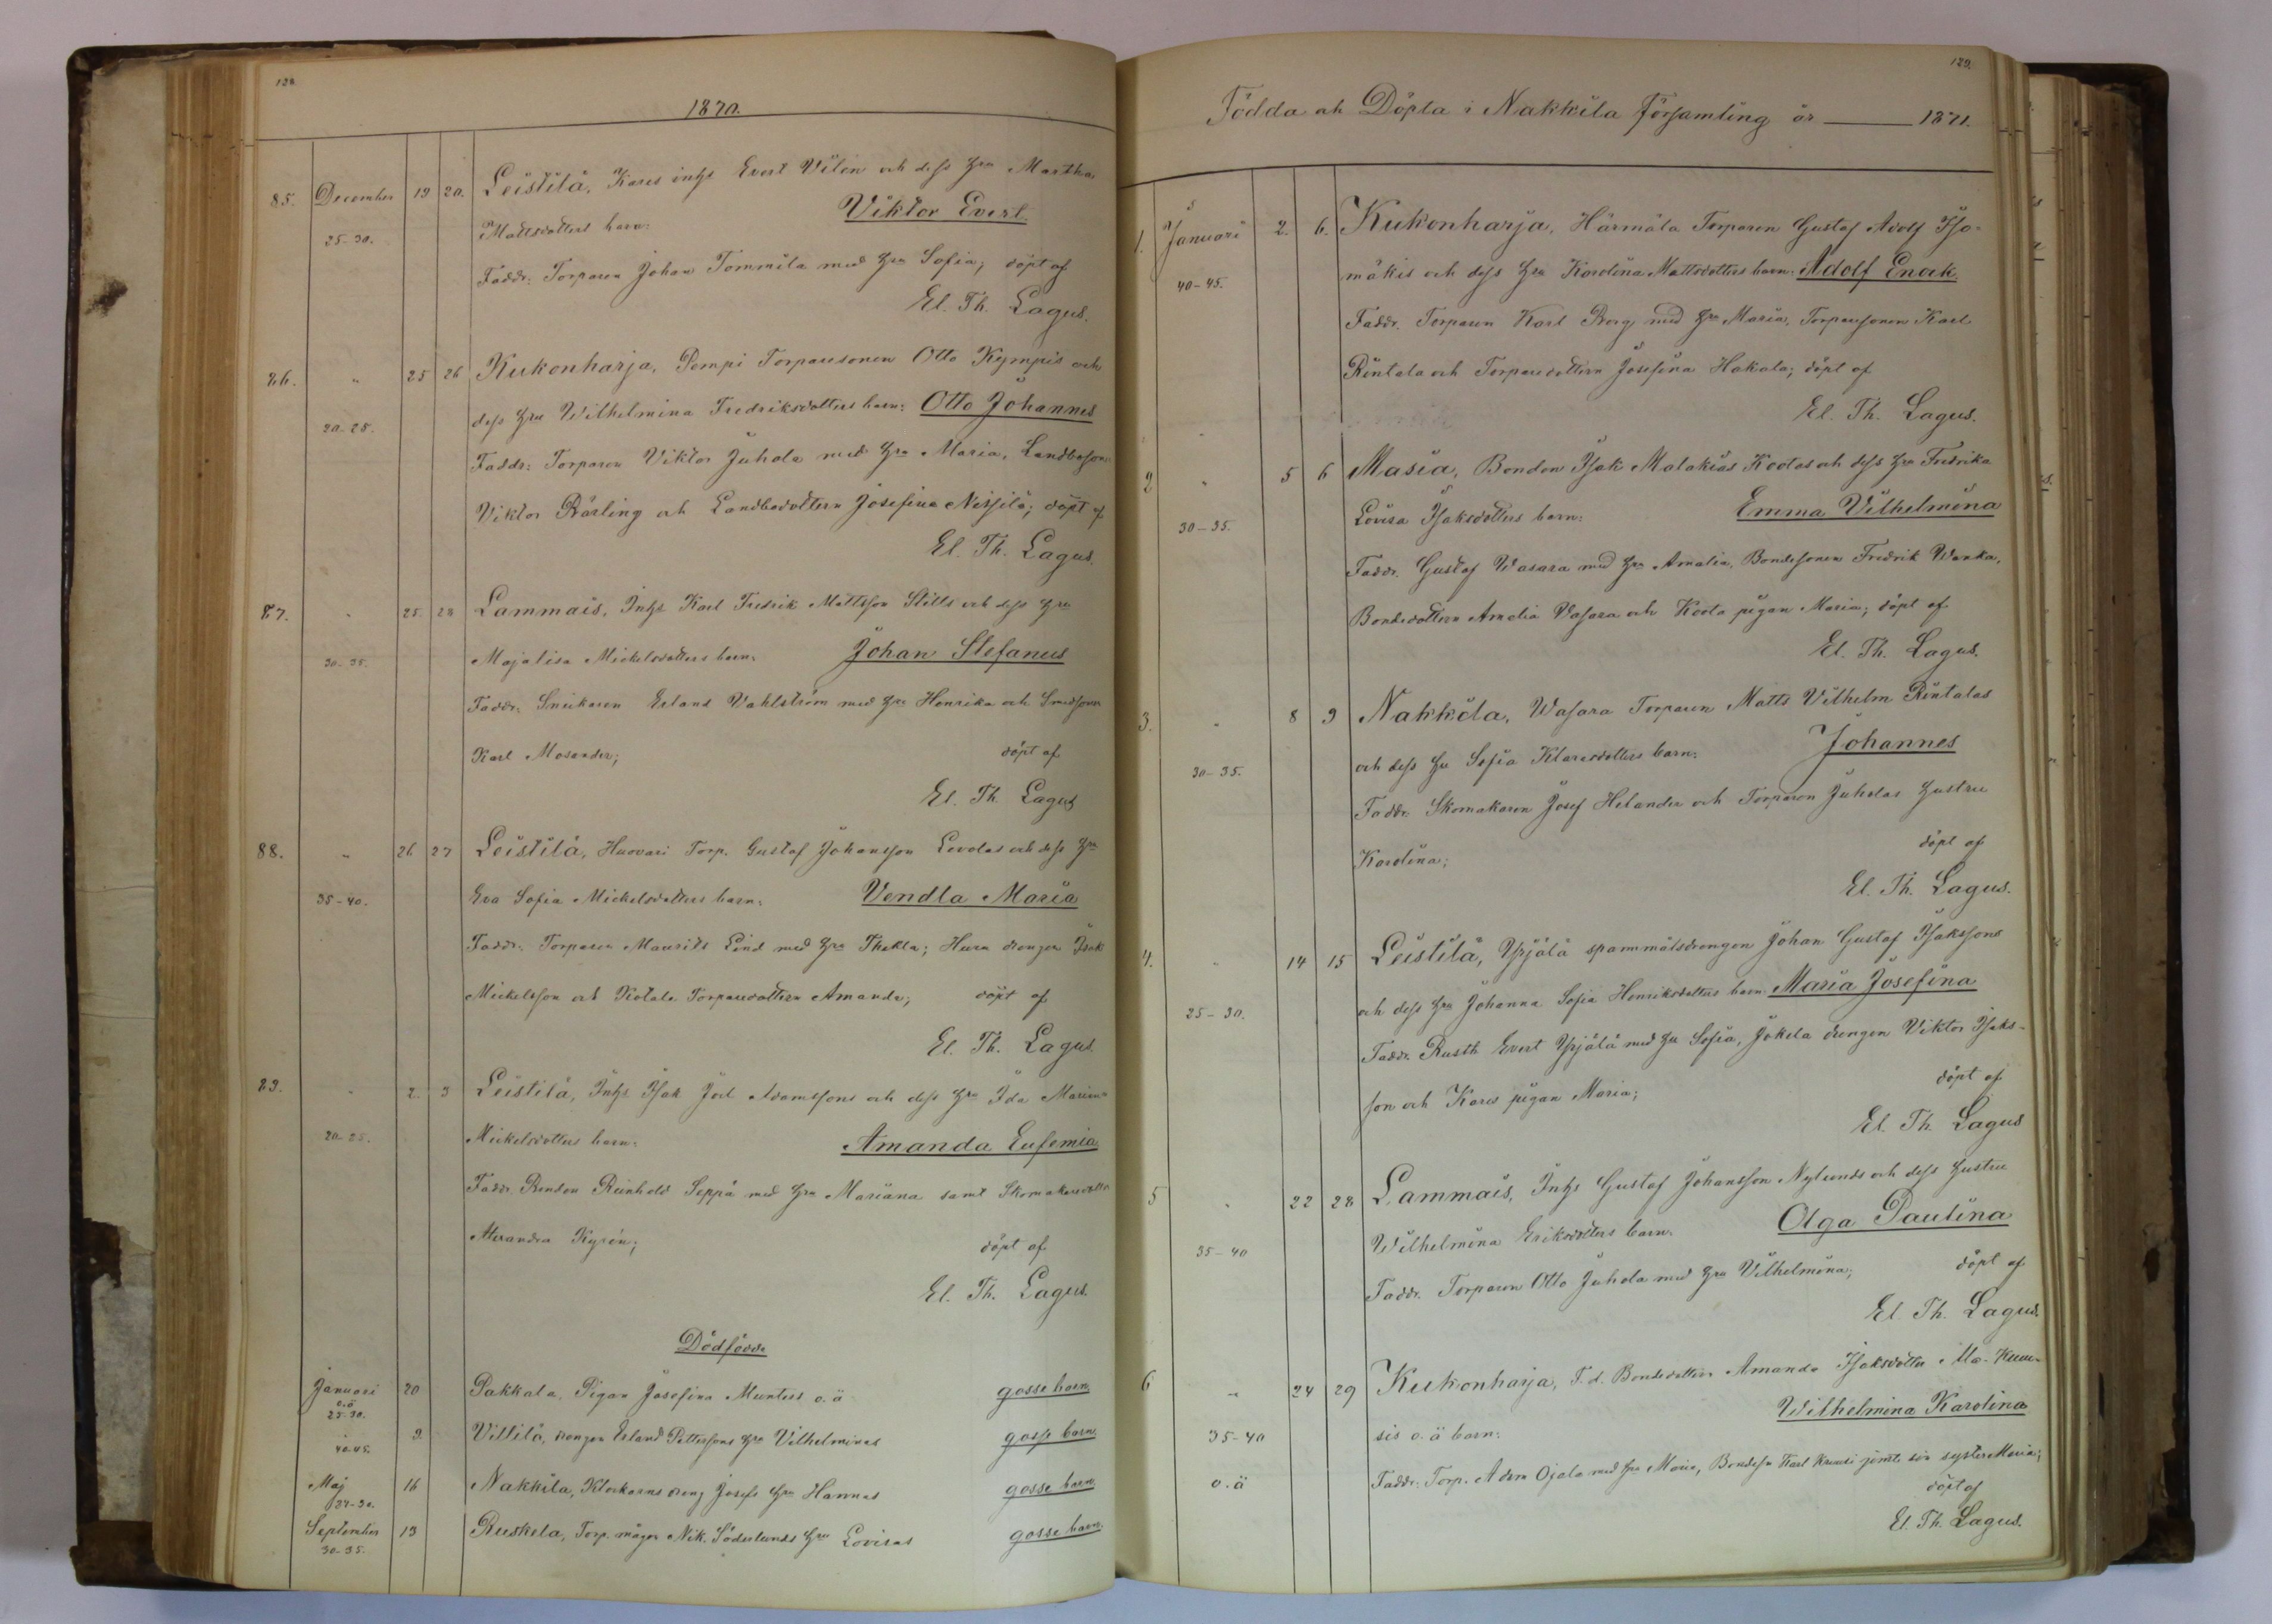 128.
1870.
85. December 19 20. Leistilä, Kares inhs Evert Vilen och dess hru Martha
25-30. Mattsdotters barn: Viktor Evert.
Faddr: Torparen Johan Tommila med hru Sofia; döpt af
El. Th. Lagus.
86. " 25 26 Kukonharja, Pempi Torparesonen Otto Kympis och
20-25. dess hru Wilhelmina Fredriksdotters barn: Otto Johannes
Faddr: Torparen Viktor Juhola med hru Maria, Landbosonen
Viktor Bärling och Landbodottern Josefina Nissilä; döpt af
El. Th. Lagus.
87. " 25. 28 Lammais, Inhs Karl Fredrik Mattsson Stitts och dess hru
30-35. Majalisa Mickelsdotters barn: Johan Stefanus
Faddr: Snickaren Erland Vahlström med hru Henrika och Smedsonen
Karl Mosander; döpt af
El. Th. Lagus
88. " 26 27 Leistilä, Huovari Torp. Gustaf Johansson Levolas och dess hru
35-40. Eva Sofia Mickelsdotters barn: Vendla Maria
Faddr: Torparen Maurits Lind med hru Thekla; drengen Isak
Mickelsson och Torparedottern Amanda; döpt af
El. Th. Lagus.
89. " 2. 3 Leistilä, Inhs Isak Joel Adamssons och dess hru Ida Mariana
20-25. Mickelsdotters barn: Amanda Eufemia
Faddr. Bonden Reinhold Seppä med hru Mariana samt Skomakaredottern
Alexandra Kyrén; döpt af
El. Th. Lagus.
Dödfödde
Januari 20 Pakkala, Pigan Josefina Munters o.ä gosse barn.
o.ä
25-30.
" 9. Villilä, drengen Erland Petterssons hru Vilhelminas gosse barn.
40-45.
Maj 16 Nakkila, Klockarns dreng Josefs hru Hannas gosse barn.
24-30.
September 13 Ruskela, Torp. mågen Nik. Söderlunds hru Lovisas gosse barn.
30-35.
129.
Födda och Döpta i Nakkila Församling år 1871.
1. Januari 2. 6. Kukonharja, Härmälä Torparen Gustaf Adolf Iso-
40-45. mäkis och dess hru Karolina Mattsdotters barn: Adolf Enok.
Faddr. Torparen Karl Borg med hru Maria, Torparesonen Karl
Rintala och Torparedottern Josefina Hakala; döpt af
El. Th. Lagus.
2 " 5 6 Masia, Bonden Isak Malakias Kootas och dess hru Fredrika
30-35. Lovisa Isaksdotters barn: Emma Vilhelmina
Faddr. Gustaf Wasara med hru Amalia, Bondesonen Fredrik Wanka,
Bondedottern Amalia Vasara och Koota pigan Maria; döpt af
El. Th. Lagus.
3. " 8 9 Nakkila, Wasara Torparen Matts Vilhelm Rintalas
30-35. och dess hru Sofia Klaresdotters barn: Johannes
Faddr. Skomakaren Josef Helander och Torparen Juholas hustru
Karolina; döpt af
El. Th. Lagus.
4. " 14 15 Leistilä, Yrjälä spammålsdrengen Johan Gustaf Isakssons
25-30. och dess hru Johanna Sofia Henriksdotters barn: Maria Josefina
Faddr. Rusth. Evert Yrjälä med hru Sofia, Jokela drengen Viktor Isaks-
son och Kares pigan Maria; döpt af
El. Th. Lagus
5 " 22 28 Lammais, Inhs Gustaf Johansson Nylunds och dess hustru
35-40 Wilhelmina Eriksdotters barn. Olga Paulina
Faddr. Torparen Otto Juhola med hru Vilhelmina; döpt af
El. Th. Lagus.
6 " 24 29 Kukonharja, F.d. Bondedottern Amanda Isaksdotter Ala-Kuu-
Wilhelmina Karolina
35-40 sis o.ä barn:
o.ä Faddr: Torp. Adam Ojala med hru Maria, Bondesn Karl Kuusi jemte sin syster Maria;
döpt af
El. Th. Lagus.